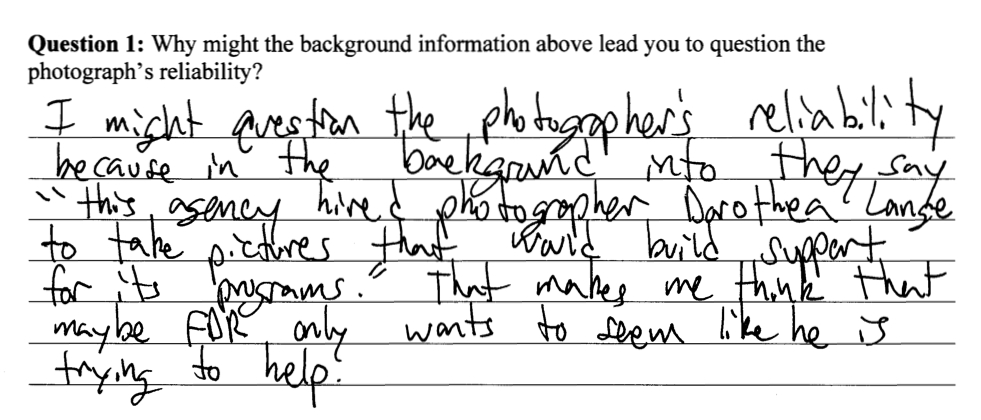 Question 1: Why might the background information above lead you to question the
photograph's reliability?
I might question the photographer's reliability
because in the background info they say
"this agency hired photographer Dorothea Lange
to take pictures that would build support
for its programs." That makes me think that
maybe FDR only wants to seem like he is
trying to help.